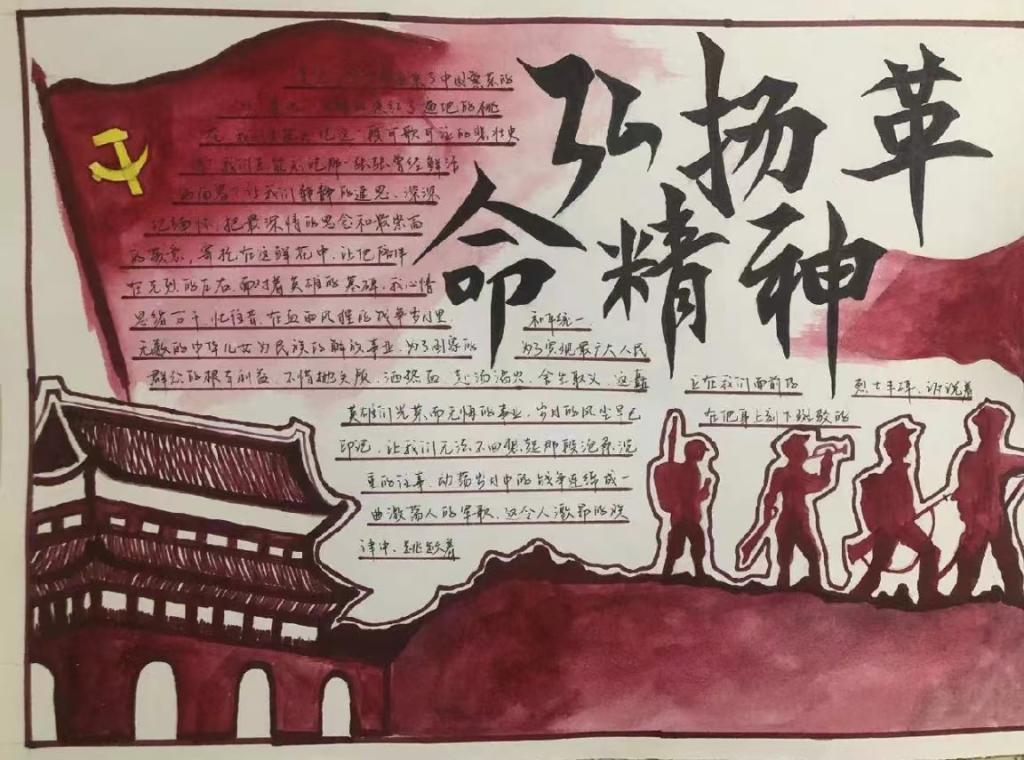 弘扬革
命精神
了中国 的
了遍地的桃
花,我们 段可歌可泣的悲壮史
我们 张张曾经鲜活
的面容!让我们静静的追思、深深
缅怀,把最深情的思念和最崇高
的敬意,寄托在这鲜花中,让他陪伴
在先烈的左右,面对着英雄的墓碑,我心情
思绪万千,忆往昔,在血雨风腥的战争岁月里,
无数的中华儿女为民族的解放事业,为了国家的
和平统一,
为了实现最广大人民
群众的根本利益,不惜抛头颅,洒热血,赴汤蹈火,舍生取义,这
英雄们光荣而无悔的事业,岁月的风尘早已
正在我们面前的 烈士丰碑,诉说着
在他身上刻下斑驳的
印记,让我们无法不回想起那段沧桑沉
重的往事,动荡岁月中的战争连绵成一
曲激荡人的军歌,这令人激昂的旋
律中,跳跃着